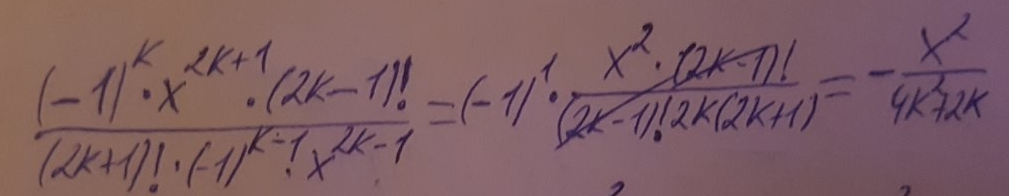 \frac{(-1)^k \cdot x^{2k+1} \cdot (2k-1)!}{(2k+1)! \cdot (-1)^{k-1} \cdot x^{2k-1}} = (-1)^1 \cdot \frac{x^2 \cdot (2k-1)!}{(2k-1)! 2k(2k+1)} = -\frac{x^2}{4k^2+2k}